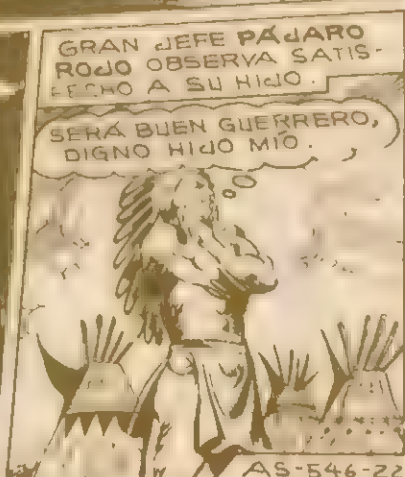 GRAN JEFE PÁJARO
ROJO OBSERVA SATIS-
FECHO A SU HIJO.
SERÁ BUEN GUERRERO,
DIGNO HIJO MÍO.
AS-546-22